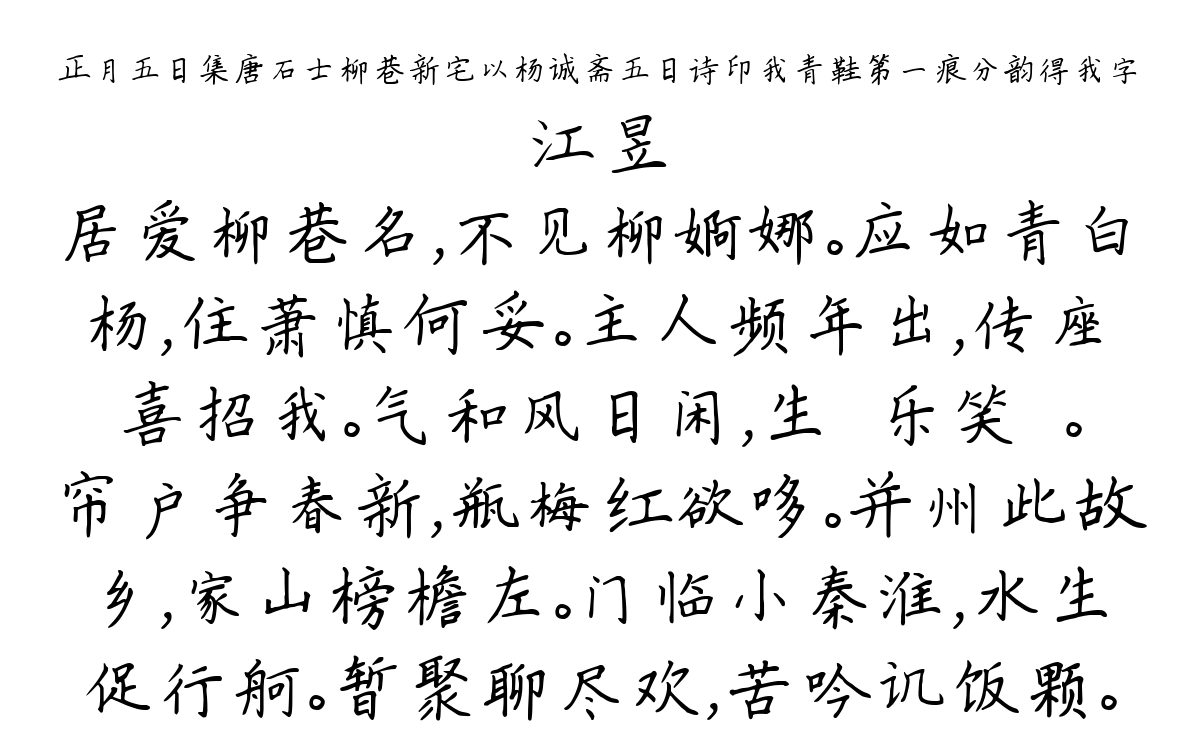 正月五日集唐石士柳巷新宅以杨诚斋五日诗印我青鞋第一痕分韵得我字
江昱
居爱柳巷名,不见柳婀娜。应如青白
杨,住萧慎何妥。主人频年出,传座
喜招我。气和风日闲,生 乐笑 。
帘户争春新,瓶梅红欲哆。并州此故
乡,家山榜檐左。门临小秦淮,水生
促行舸。暂聚聊尽欢,苦吟讥饭颗。